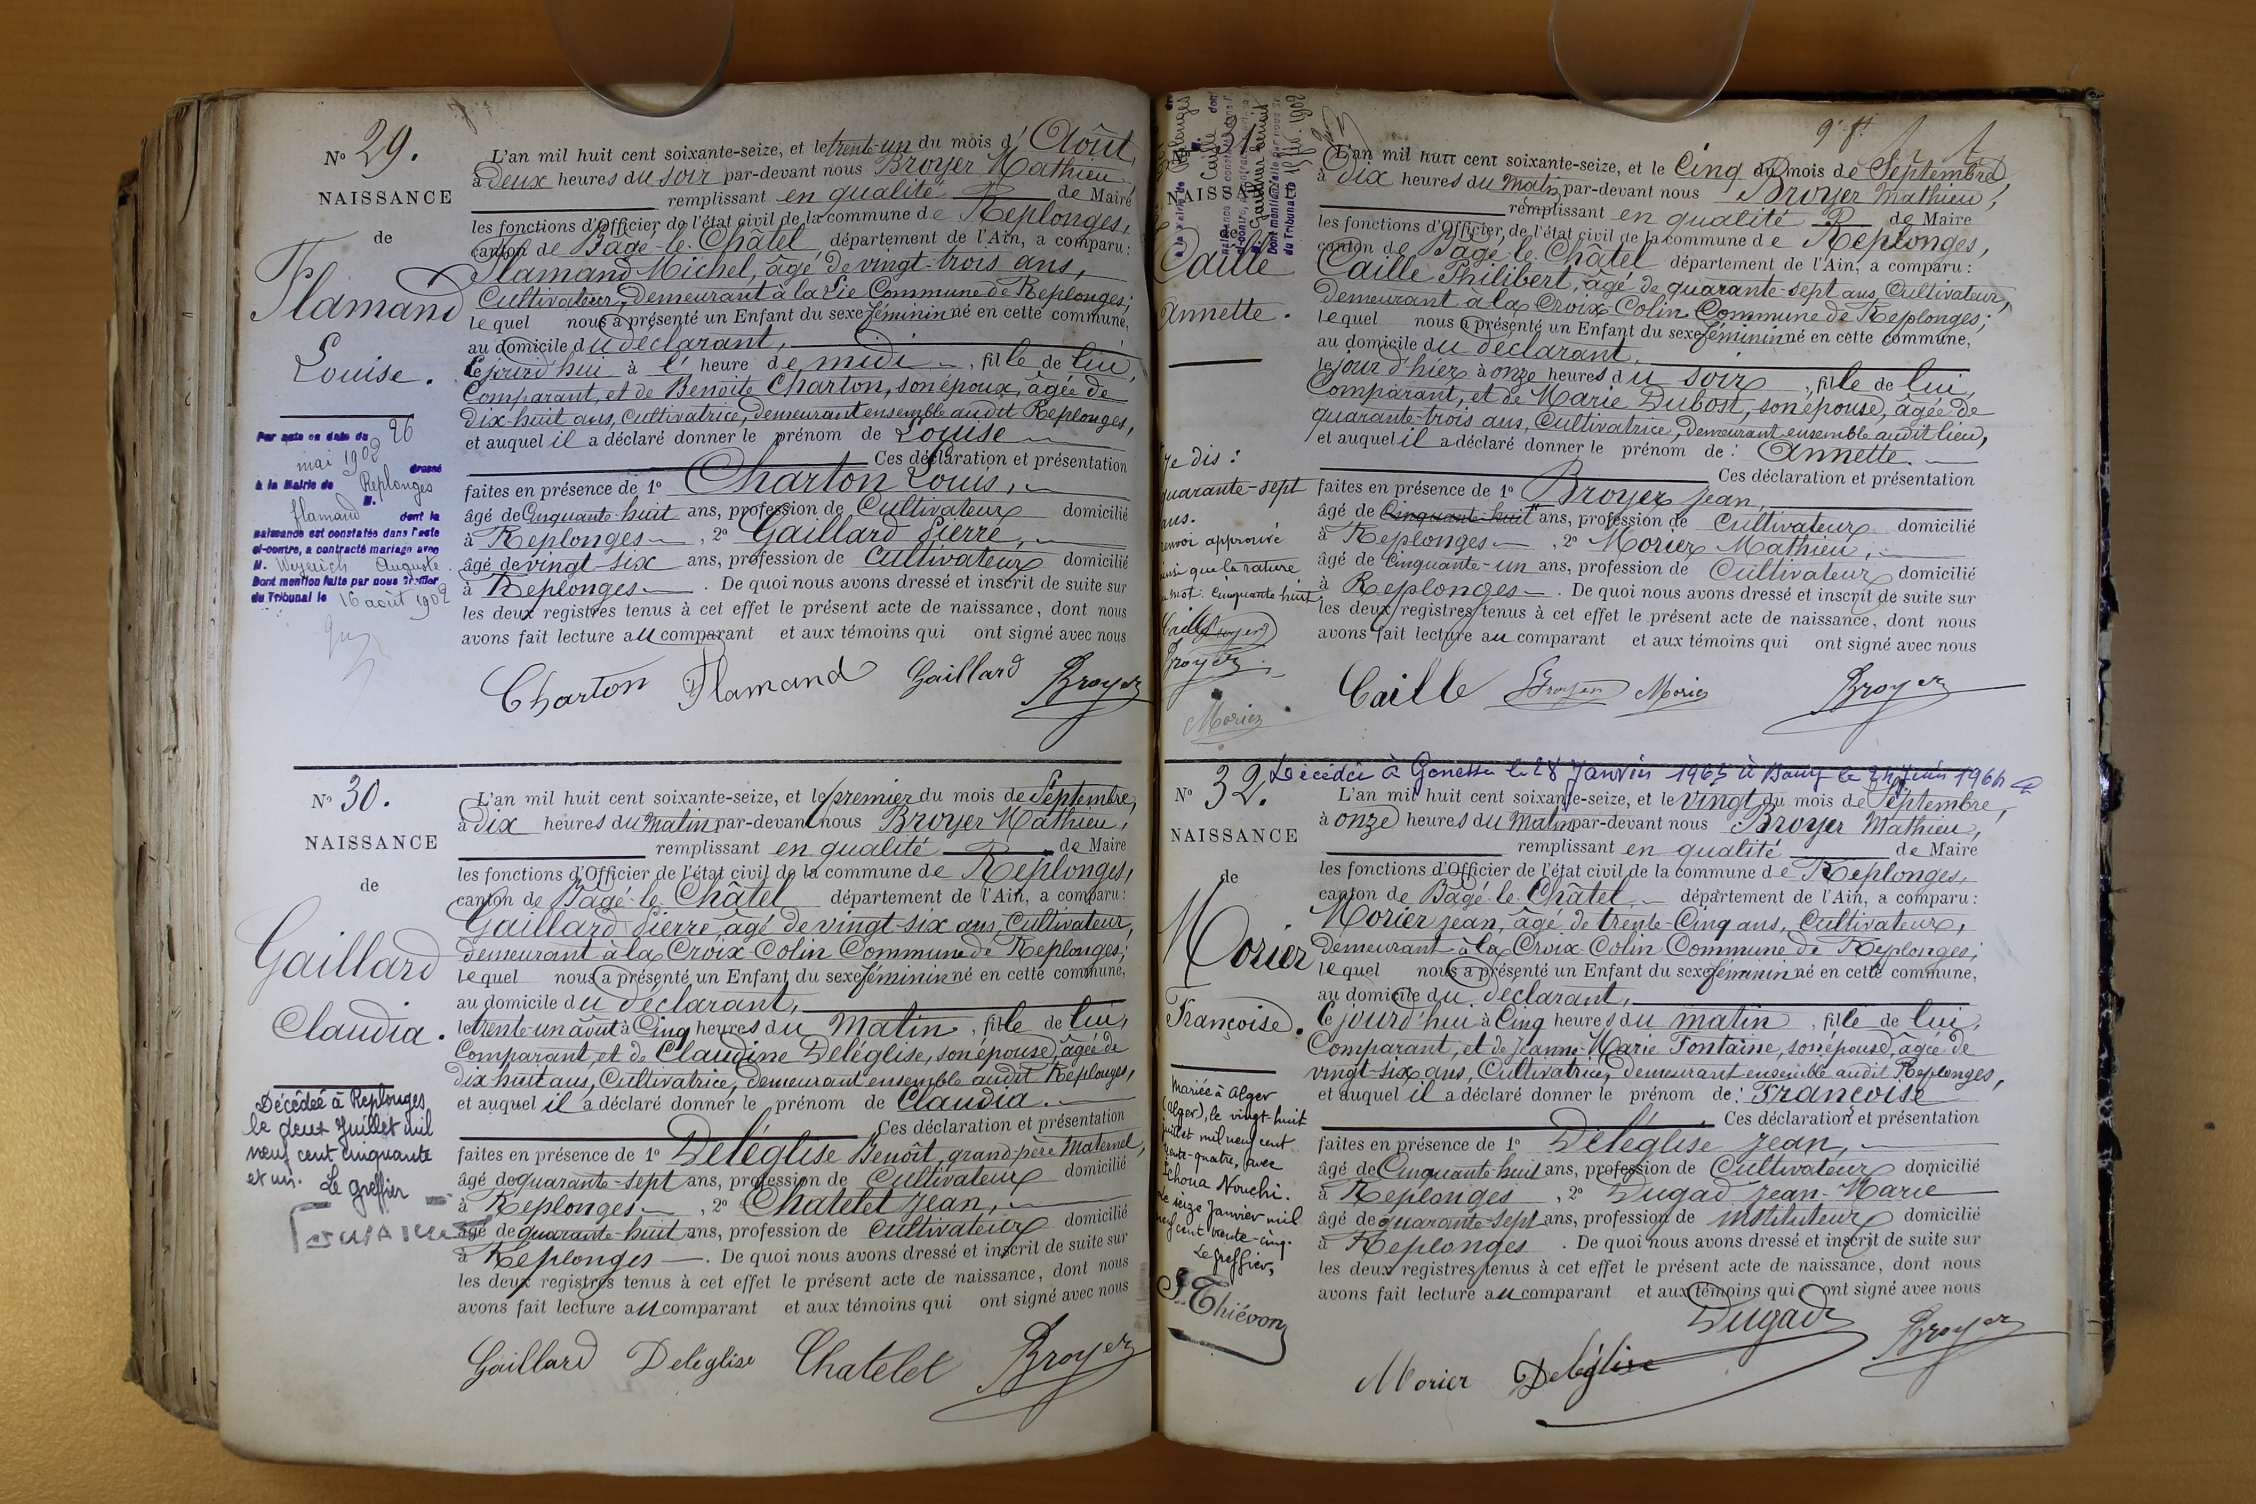 N° 29.
NAISSANCE
de
Flamand
Louise.
Par acte en date du 26
mai 1902 dressé
à la Mairie de Replonges
M.
flamand dont la
naissance est constatée dans l'acte
ci-contre, a contracté mariage avec
M. Weyerich Auguste.
Dont mention faite par nous Greffier
du Tribunal le 16 août 1902
L'an mil huit cent soixante-seize, et le trente-un du mois d'Août,
à deux heures du soir par-devant nous Broyer Mathieu,
remplissant en qualité de Maire
les fonctions d'Officier de l'état civil de la commune de Replonges,
canton de Bagé-le-Châtel département de l'Ain, a comparu:
Flamand Michel, âgé de vingt-trois ans,
Cultivateur, demeurant à la Commune de Replonges;
lequel nous a présenté un Enfant du sexe féminin né en cette commune,
au domicile du déclarant,
cejourd'hui à l'heure de midi, fille de lui,
Comparant, et de Benoîte Charton, son époux, âgée de
dix-huit ans, cultivatrice, demeurant ensemble audit Replonges,
et auquel il a déclaré donner le prénom de Louise
Ces déclaration et présentation
faites en présence de 1° Charton Louis,
âgé de Cinquante-huit ans, profession de Cultivateur domicilié
à Replonges, 2° Gaillard Pierre,
âgé de vingt-six ans, profession de cultivateur domicilié
à Replonges. De quoi nous avons dressé et inscrit de suite sur
les deux registres tenus à cet effet le présent acte de naissance, dont nous
avons fait lecture au comparant et aux témoins qui ont signé avec nous
Charton Flamand Gaillard Broyer
N° 30.
NAISSANCE
de
Gaillard
Claudia.
Décédée à Replonges
le deux Juillet mil
neuf cent cinquante
et un. Le greffier
L'an mil huit cent soixante-seize, et le premier du mois de Septembre,
à dix heures du Matin par-devant nous Broyer Mathieu,
remplissant en qualité de Maire
les fonctions d'Officier de l'état civil de la commune de Replonges,
canton de Bagé-le-Châtel département de l'Ain, a comparu:
Gaillard Pierre âgé de vingt-six ans, Cultivateur,
demeurant à la Croix-Colin Commune de Replonges;
lequel nous a présenté un Enfant du sexe féminin né en cette commune,
au domicile du déclarant,
le trente-un août à Cinq heures du Matin, fille de lui,
Comparant, et de Claudine Deléglise, son épouse, âgée de
dix-huit ans, Cultivatrice, demeurant ensemble audit Replonges,
et auquel il a déclaré donner le prénom de Claudia.
Ces déclaration et présentation
faites en présence de 1° Deléglise Benoît, grand-père Maternel,
âgé de quarante-sept ans, profession de Cultivateur domicilié
à Replonges, 2° Chatelet Jean,
âgé de quarante-huit ans, profession de cultivateur domicilié
à Replonges. De quoi nous avons dressé et inscrit de suite sur
les deux registres tenus à cet effet le présent acte de naissance, dont nous
avons fait lecture au comparant et aux témoins qui ont signé avec nous
Gaillard Deléglise Chatelet Broyer
Caille
Annette.
quarante-sept
ans.
renvoi approuvé
ainsi que la rature
mot: Cinquante huit
Caille Broyer
Broyer
Morier
L'an mil huit cent soixante-seize, et le Cinq du mois de Septembre,
à dix heures du Matin par-devant nous Broyer Mathieu,
remplissant en qualité de Maire
les fonctions d'Officier de l'état civil de la commune de Replonges,
canton de Bagé-le-Châtel département de l'Ain, a comparu:
Caille Philibert, âgé de quarante-sept ans, Cultivateur,
demeurant à la Croix-Colin Commune de Replonges;
lequel nous a présenté un Enfant du sexe féminin né en cette commune,
au domicile du déclarant,
le jour d'hier à onze heures du soir, fille de lui,
Comparant, et de Marie Dubost, son épouse, âgée de
quarante-trois ans, Cultivatrice, demeurant ensemble audit lieu,
et auquel il a déclaré donner le prénom de: Annette.
Ces déclaration et présentation
faites en présence de 1° Broyer Jean,
âgé de Cinquante-huit ans, profession de Cultivateur domicilié
à Replonges, 2° Morier Mathieu,
âgé de Cinquante-un ans, profession de Cultivateur domicilié
à Replonges. De quoi nous avons dressé et inscrit de suite sur
les deux registres tenus à cet effet le présent acte de naissance, dont nous
avons fait lecture au comparant et aux témoins qui ont signé avec nous
Caille Broyer Morier Broyer
Décédée à Gonesse le 28 Janvier 1965 à Bourg le 24 Juin 1966
N° 32.
NAISSANCE
de
Morier
Françoise.
Mariée à Alger
(Alger), le vingt-huit
juillet mil neuf cent
trente-quatre, avec
Nouchi.
Le seize Janvier mil
neuf cent trente-cinq.
Le greffier,
Thiévon
L'an mil huit cent soixante-seize, et le Vingt du mois de Septembre,
à onze heures du Matin par-devant nous Broyer Mathieu,
remplissant en qualité de Maire
les fonctions d'Officier de l'état civil de la commune de Replonges,
canton de Bagé-le-Châtel département de l'Ain, a comparu:
Morier Jean, âgé de trente-Cinq ans, Cultivateur,
demeurant à la Croix Colin Commune de Replonges;
lequel nous a présenté un Enfant du sexe féminin né en cette commune,
au domicile du déclarant,
cejourd'hui à Cinq heures du matin, fille de lui,
Comparant, et de Jeanne-Marie Fontaine, son épouse, âgée de
vingt-six ans, Cultivatrice, demeurant ensemble audit Replonges,
et auquel il a déclaré donner le prénom de: Françoise
Ces déclaration et présentation
faites en présence de 1° Deléglise Jean,
âgé de Cinquante huit ans, profession de Cultivateur domicilié
à Replonges, 2° Dugad Jean-Marie
âgé de quarante-sept ans, profession de instituteur domicilié
à Replonges. De quoi nous avons dressé et inscrit de suite sur
les deux registres tenus à cet effet le présent acte de naissance, dont nous
avons fait lecture au comparant et aux témoins qui ont signé avec nous
Morier Deléglise Dugad Broyer